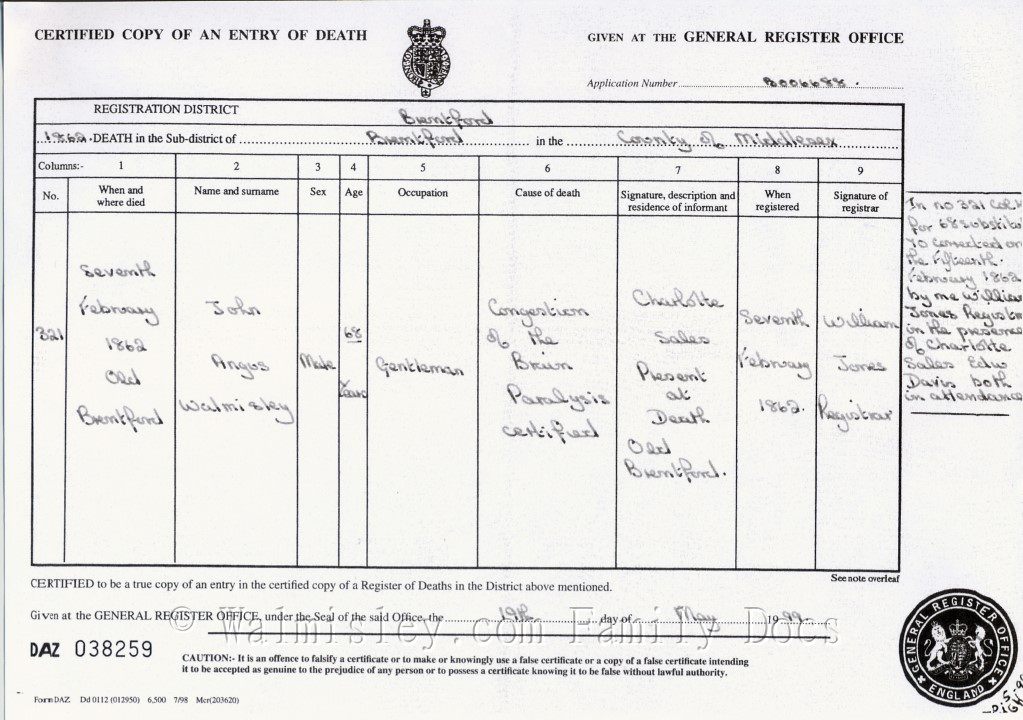 CERTIFIED COPY OF AN ENTRY OF DEATH
GIVEN AT THE GENERAL REGISTER OFFICE
Application Number B006688.
REGISTRATION DISTRICT Brentford
1862. DEATH in the Sub-district of Brentford in the County of Middlesex
Columns:- 1 2 3 4 5 6 7 8 9
No.
When and
where died
Name and surname
Sex
Age
Occupation
Cause of death
Signature, description and
residence of informant
When
registered
Signature of
registrar
321
Seventh
February
1862
Old
Brentford
John
Angus
Walmisley
Male
68
Years
Gentleman
Congestion
of the
Brain
Paralysis
certified
Charlotte
Sales
Present
at
Death
Old
Brentford.
Seventh
February
1862.
William
Jones
Registrar
In no 321 Col
for 68 substitu
70 corrected on
the Fifteenth.
February 1862
by me William
Jones Registr
in the presence
of Charlotte
Sales Edw
Davis both
in attendance
See note overleaf
CERTIFIED to be a true copy of an entry in the certified copy of a Register of Deaths in the District above mentioned.
Given at the GENERAL REGISTER OFFICE, under the Seal of the said Office, the 19th day of May 1999
© Walmisley.com Family Docs
DAZ 038259
CAUTION:- It is an offence to falsify a certificate or to make or knowingly use a false certificate or a copy of a false certificate intending
it to be accepted as genuine to the prejudice of any person or to possess a certificate knowing it to be false without lawful authority.
Form DAZ Dd 0112 (012950) 6,500 7/98 Mcr(203620)
GENERAL REGISTER OFFICE
ENGLAND